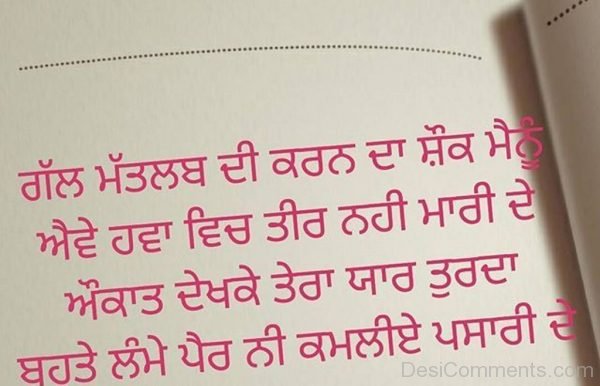 ਗੱਲ ਮੱਤਲਬ ਦੀ ਕਰਨ ਦਾ ਸ਼ੌਕ ਮੈਨੂੰ
ਐਵੇ ਹਵਾ ਵਿਚ ਤੀਰ ਨਹੀ ਮਾਰੀ ਦੇ
ਔਕਾਤ ਦੇਖਕੇ ਤੇਰਾ ਯਾਰ ਤੁਰਦਾ
ਬਹਤੇ ਲੰਮੇ ਪੈਰ ਨੀ ਕਮਲੀਏ ਪਸਾਰੀ ਦੇ
DesiComments.com